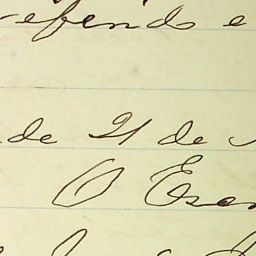 refendo e
de 21 de
O Escr